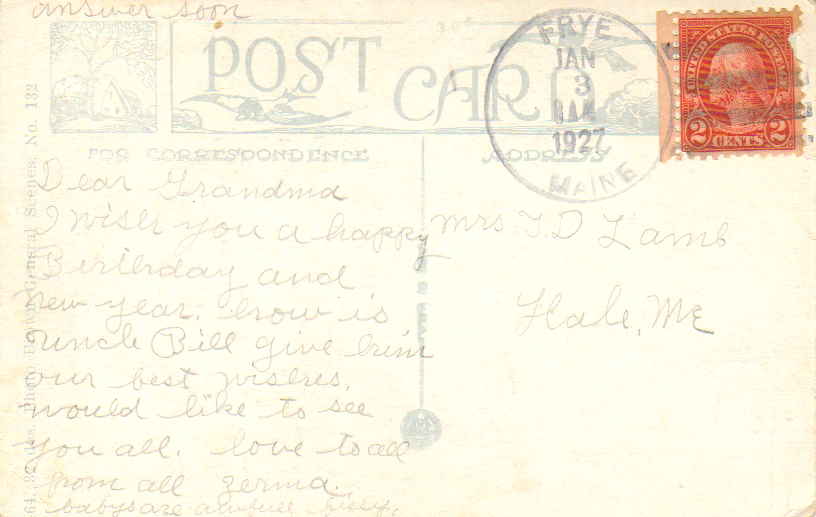 answer soon
POST CARD
FRYE
JAN
3
1927
MAINE
UNITED STATES POSTAGE
2 CENTS 2
FOR CORRESPONDENCE
ADDRESS
Dear Grandma
I wish you a happy
Birthday and
New year. how is
Uncle Bill give him
our best wishes.
would like to see
you all. love to all
from all Zerma.
babys are awfull fussy.
Mrs T. D Lamb
Hale, Me
General Scenes. No. 132